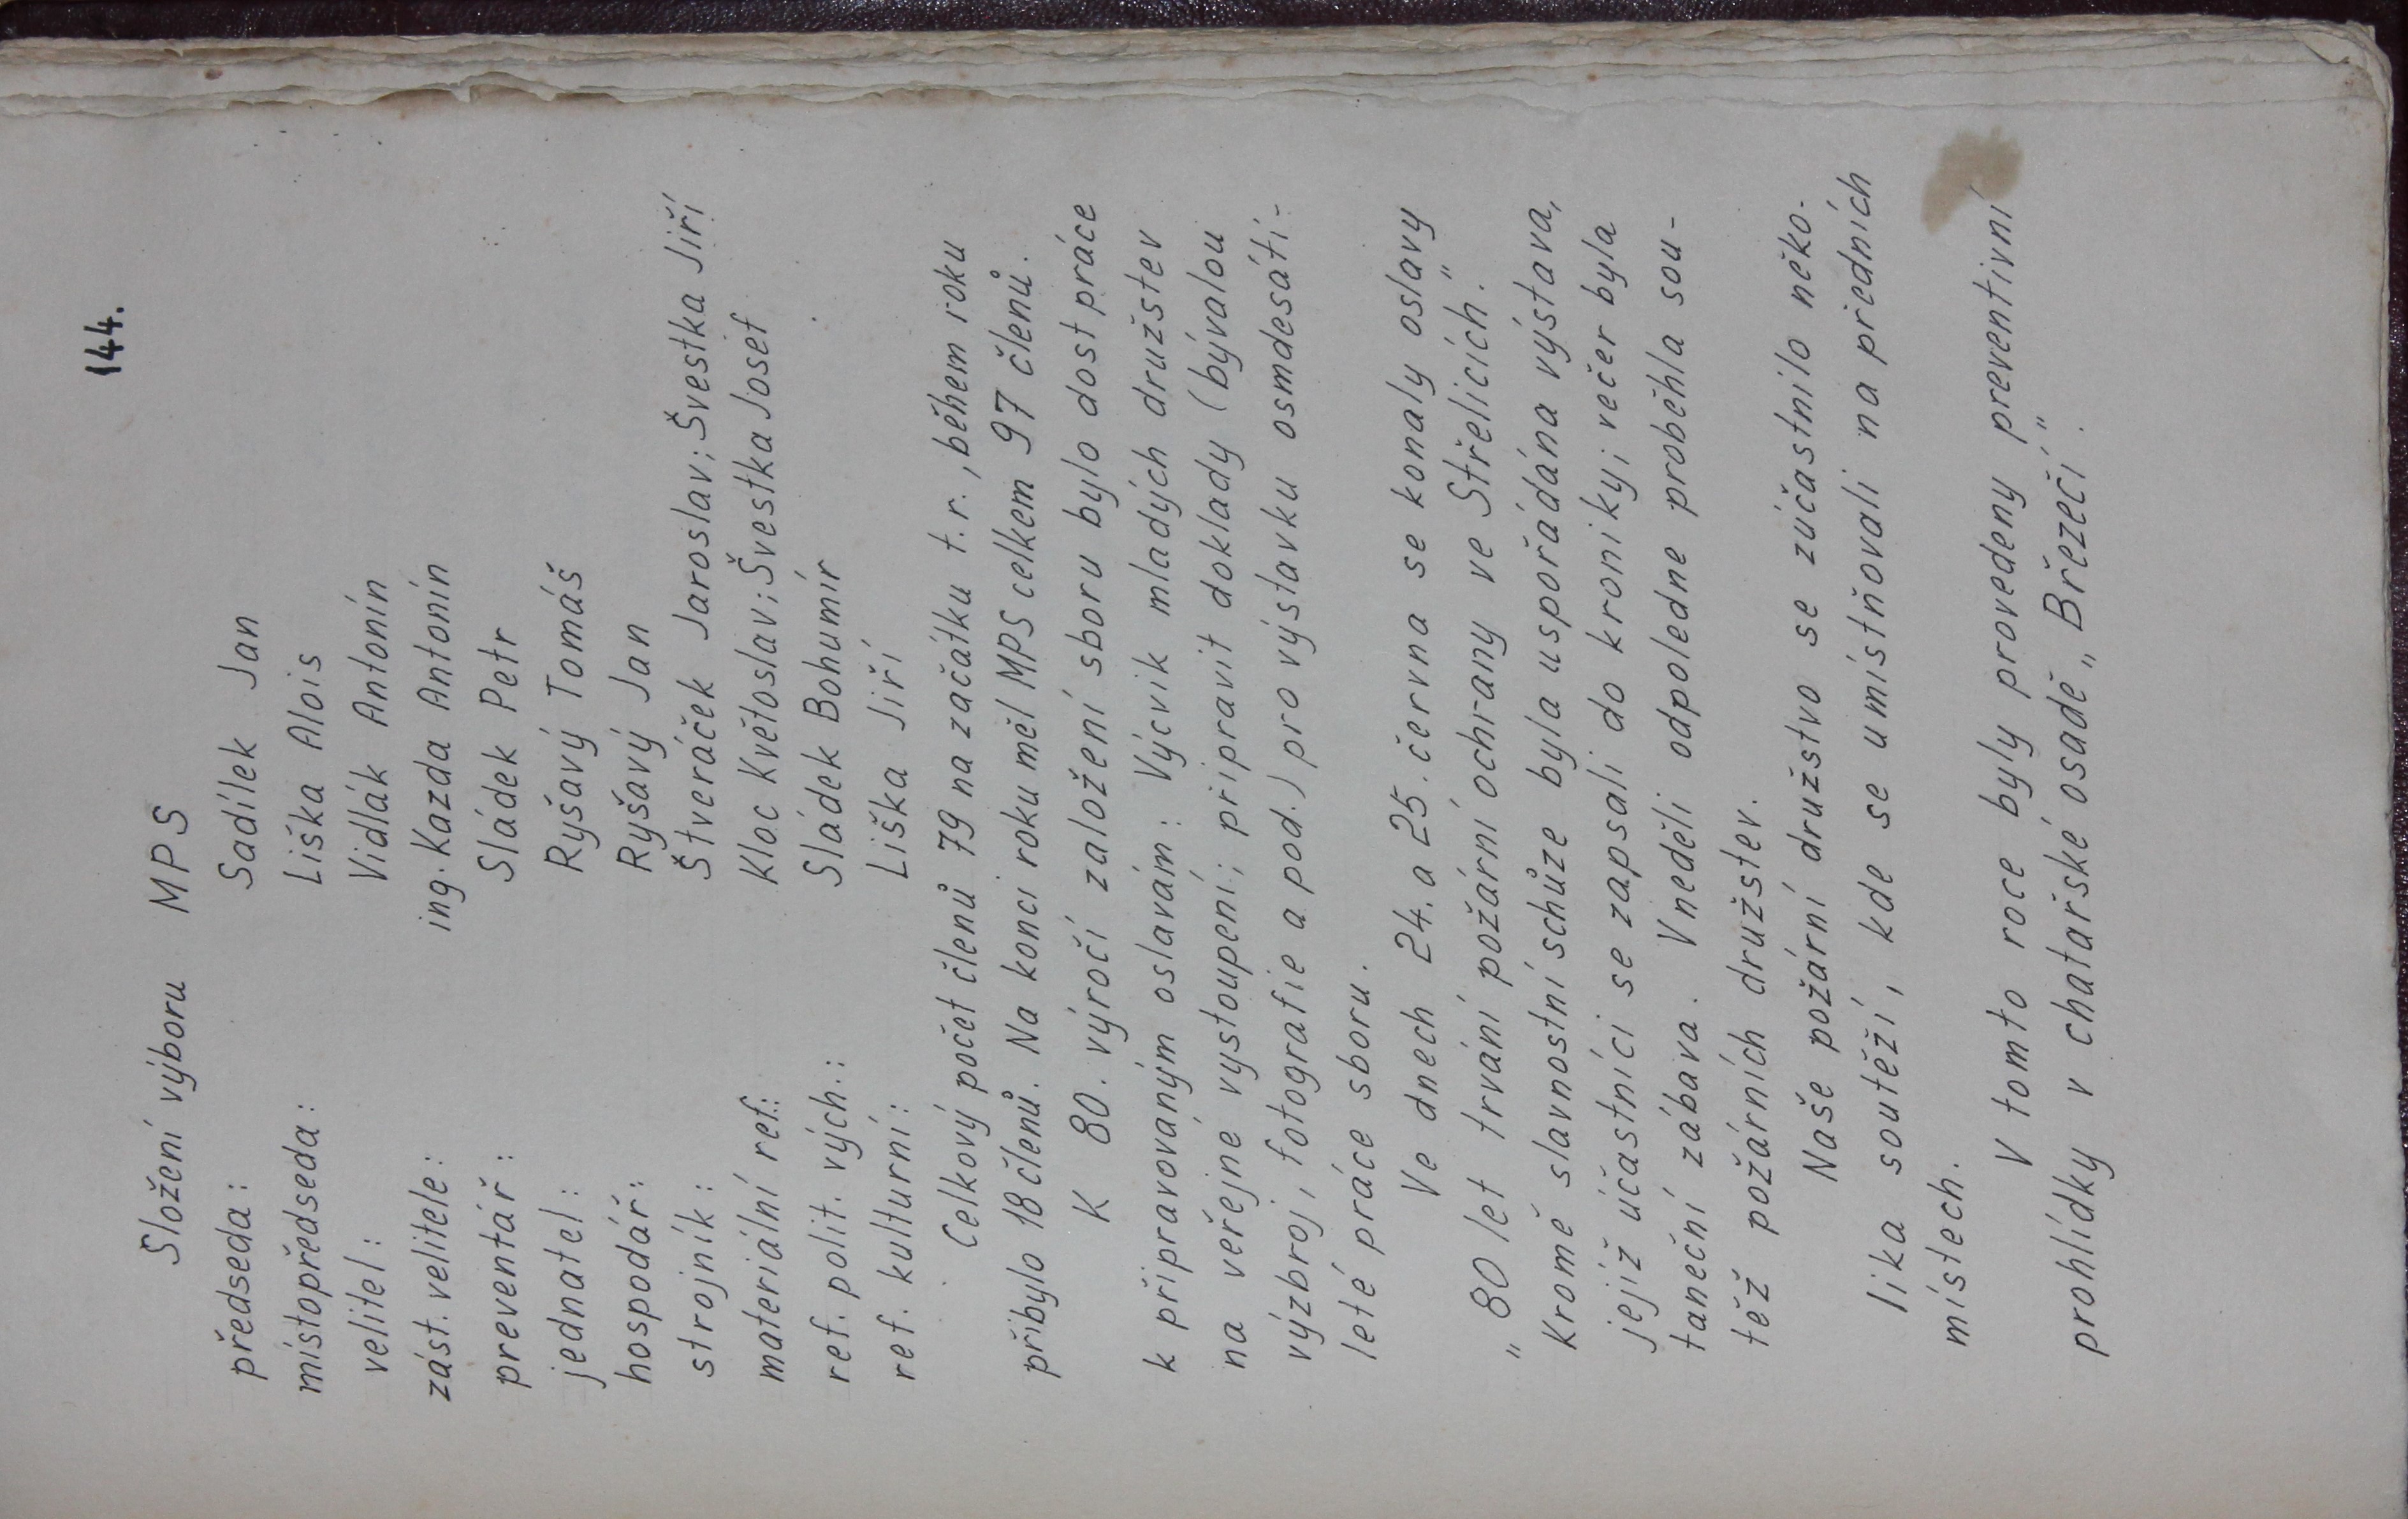 144.
Složení výboru MPS
předseda: Sadílek Jan
místopředseda: Liška Alois
velitel: Vidlák Antonín
zást. velitele: ing. Kazda Antonín
preventář: Sládek Petr
jednatel: Ryšavý Tomáš
hospodář: Ryšavý Jan
strojník: Štveráček Jaroslav; Švestka Jiří
materiální ref.: Kloc Květoslav; Švestka Josef
ref. polit. vých.: Sládek Bohumír
ref. kulturní: Liška Jiří
Celkový počet členů 79 na začátku t.r., během roku
přibylo 18 členů. Na konci roku měl MPS celkem 97 členů.
K 80. výročí založení sboru bylo dost práce
k připravovaným oslavám: Výcvik mladých družstev
na veřejné vystoupení; připravit doklady (bývalou
výzbroj, fotografie a pod.) pro výstavku osmdesáti-
leté práce sboru.
Ve dnech 24. a 25. června se konaly oslavy
„80 let trvání požární ochrany ve Střelicích."
Kromě slavnostní schůze byla uspořádána výstava,
jejíž účastníci se zapsali do kroniky; večer byla
taneční zábava. V neděli odpoledne proběhla sou-
těž požárních družstev.
Naše požární družstvo se zúčastnilo něko-
lika soutěží, kde se umístňovali na předních
místech.
V tomto roce byly provedeny preventivní
prohlídky v chatařské osadě „Březečí".